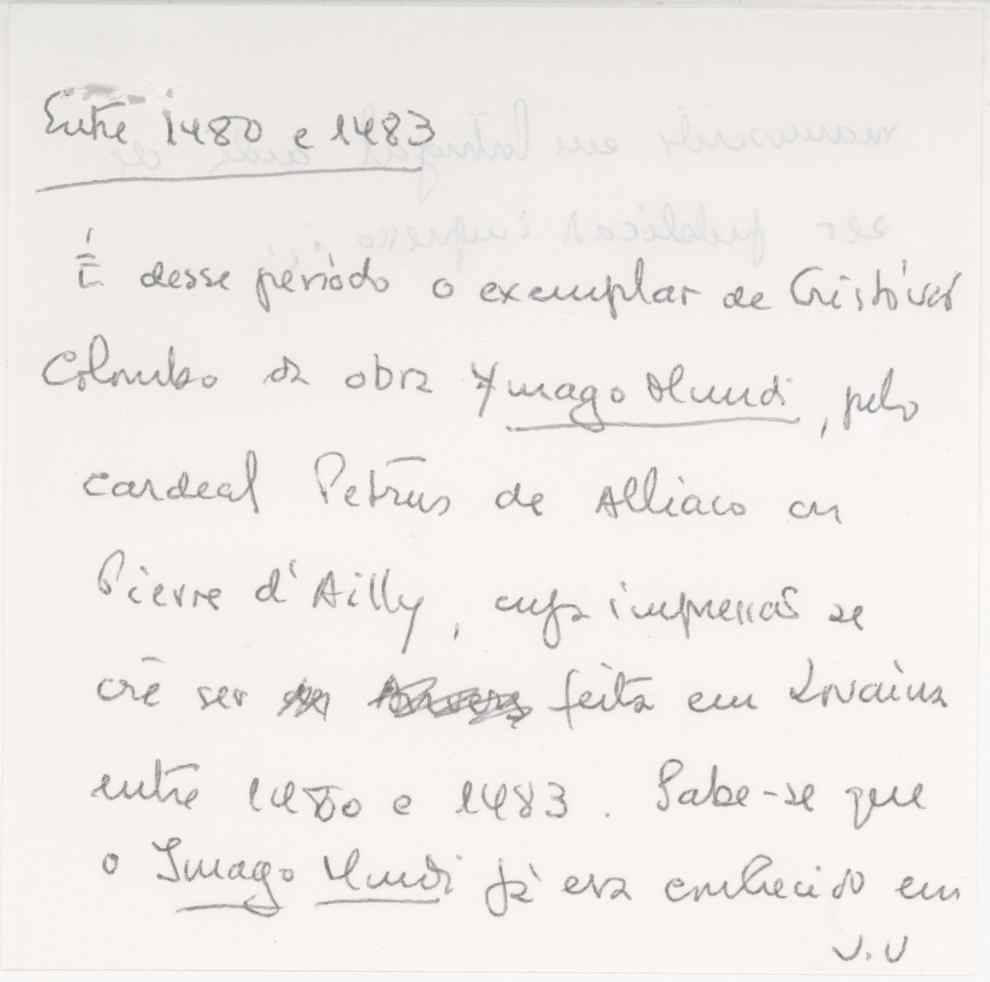 Entre 1480 e 1483
É desse período o exemplar de Cristóvão
Colombo da obra Ymago Mundi, pelo
cardeal Petrus de Alliaco ou
Pierre d'Ailly, cuja impressão se
crê ser feita em Lovaina
entre 1480 e 1483. Sabe-se que
o Imago Mundi já era conhecido em
V.V